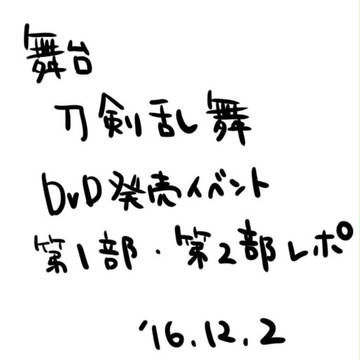 舞台
刀剣乱舞
DVD発売イベント
第1部・第2部レポ
'16.12.2